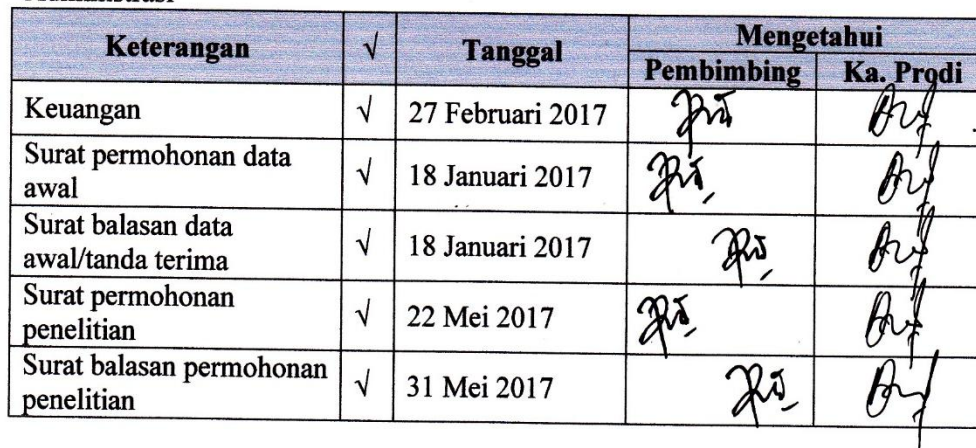 Keterangan √ Tanggal Mengetahui
Pembimbing Ka. Prodi
Keuangan √ 27 Februari 2017
Surat permohonan data
awal √ 18 Januari 2017
Surat balasan data
awal/tanda terima √ 18 Januari 2017
Surat permohonan
penelitian √ 22 Mei 2017
Surat balasan permohonan
penelitian √ 31 Mei 2017